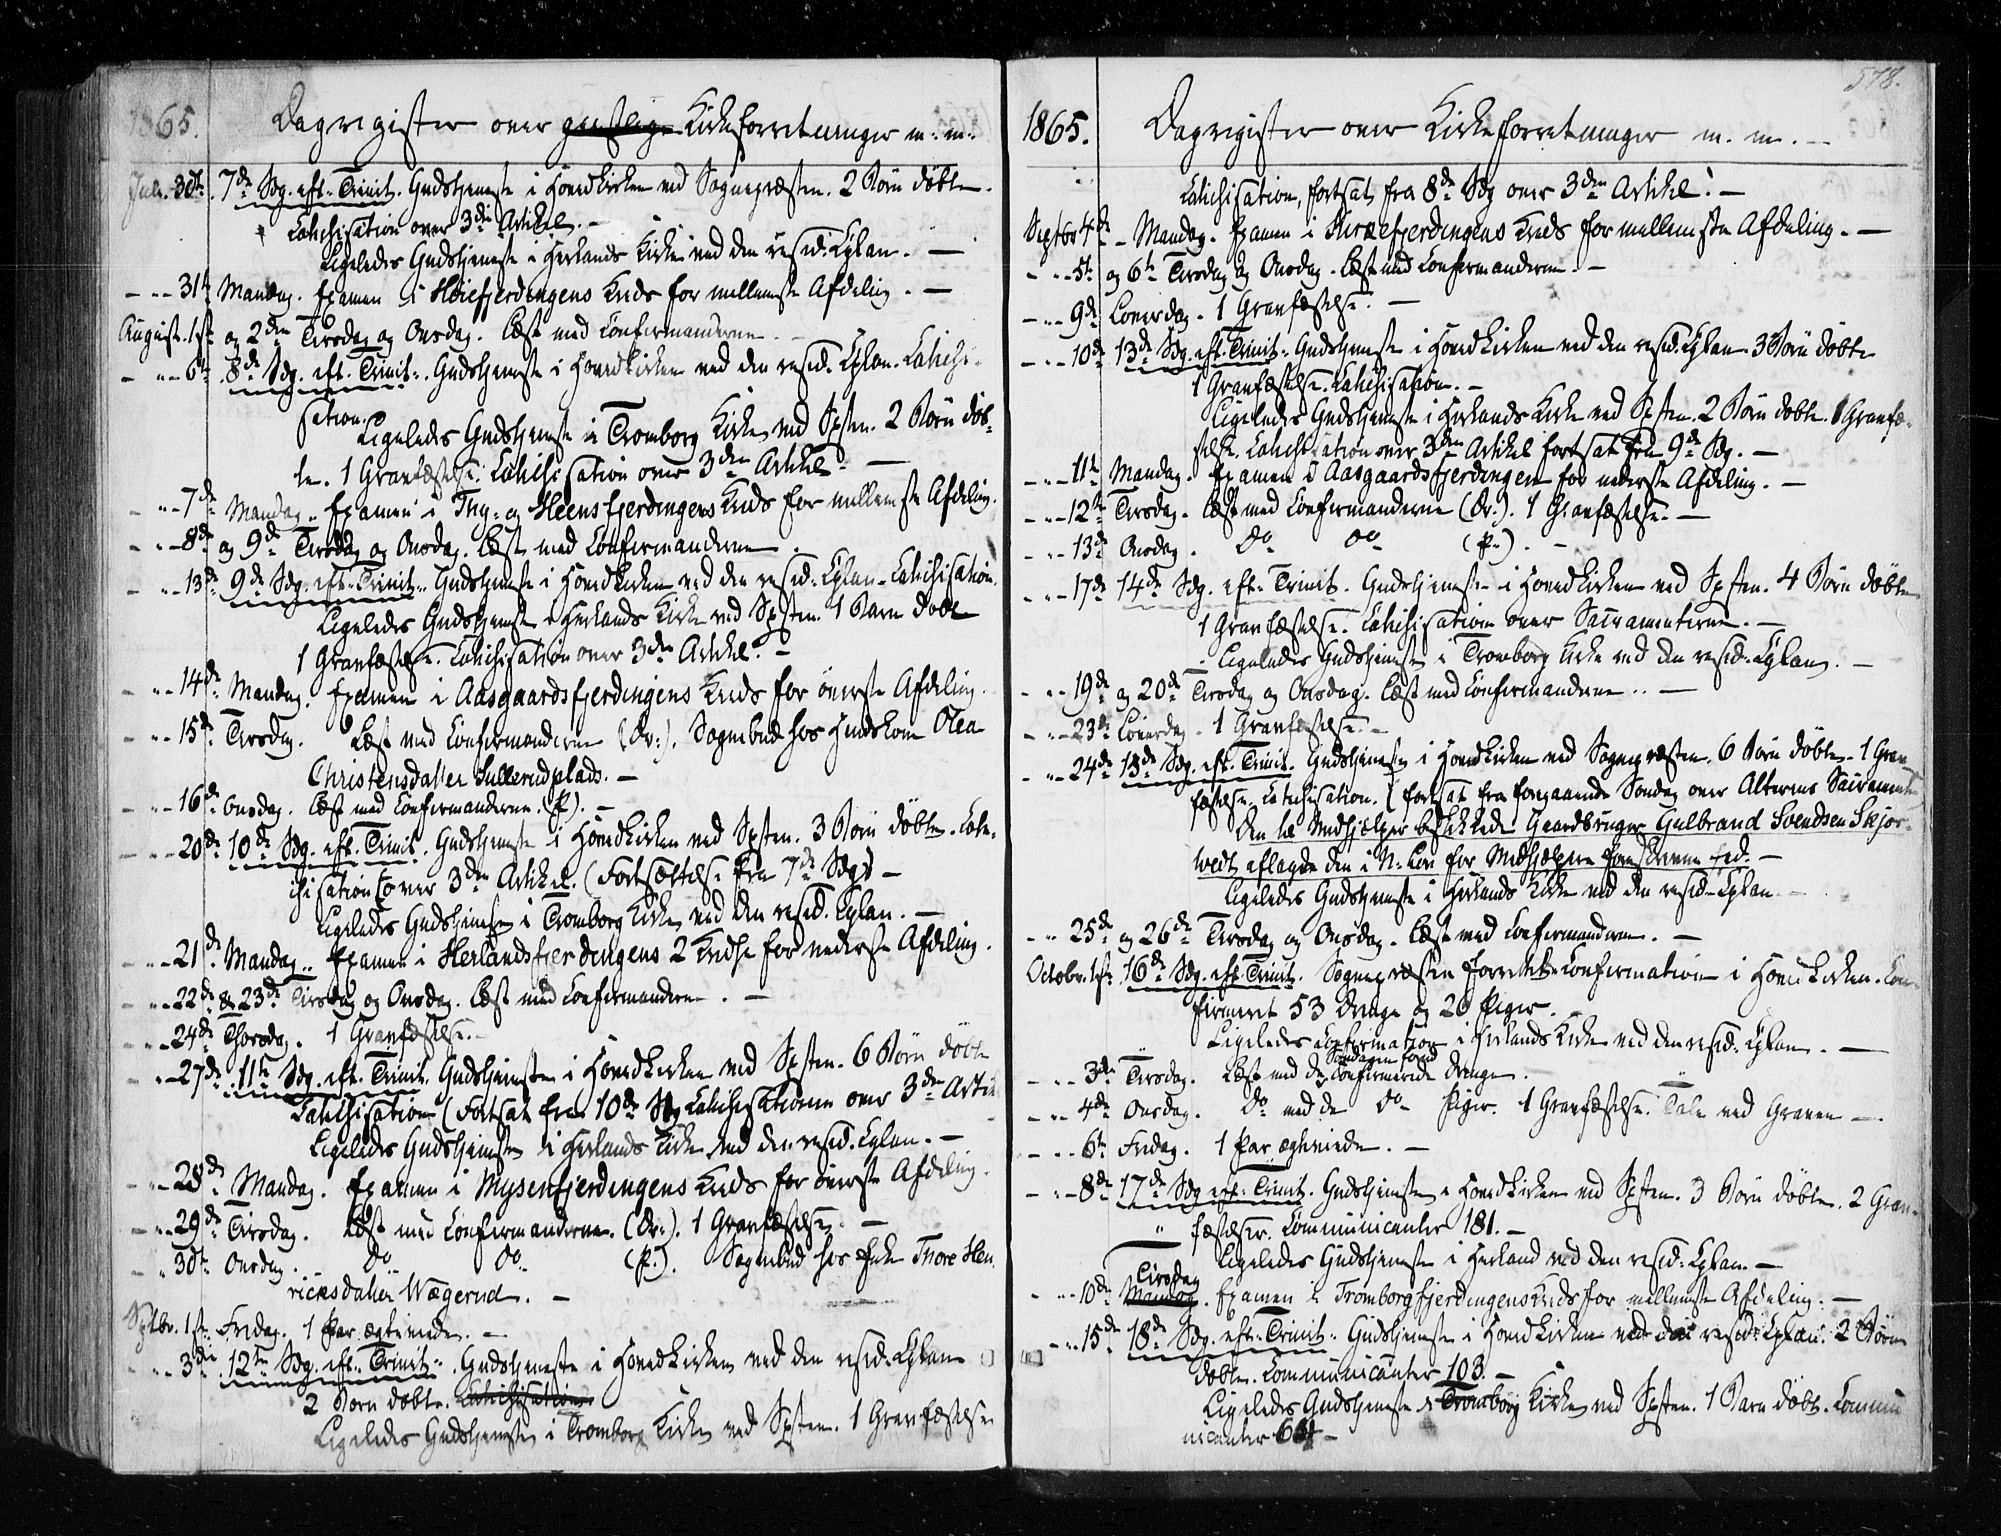 1865.
Dagregister over geistlige Kirkeforretninger m: m:
Juli. 30te 7de Sdg. eft. Trinit. Gudstjeneste i Hovedkirken ved Sognepræsten. 2 Børn døbte.
Catechisation over 3die Artikel. —
Ligeledes Gudstjeneste i Herlands Kirke ved den resid: Cplan. —
31te Mandag. Examen i Høiefjerdingens Kreds for mellemste Afdeling. —
August. 1ste og 2den Tirsdag og Onsdag. Læst med Confirmanderne.
6te 8de Sdg. eft. Trinit. Gudstjeneste i Hovedkirken ved den resid. Cplan. Catechi-
sation.
Ligeledes Gudstjeneste i Tromborg Kirke ved Spsten. 2 Børn døb-
te. 1 Gravfæstelse. Catechisation over 3die Artikel. —
7de Mandag. Examen i Ing- og Heensfjerdingens Kreds for mellemste Afdeling.
8de og 9de Tirsdag og Onsdag. Læst med Confirmanderne
13de 9de Sdg. eft. Trinit. Gudstjeneste i Hovedkirken ved den resid: Cplan. Catechisation.
Ligeledes Gudstjeneste i Herlands Kirke ved Spsten. 1 Barn døbt
1 Gravfæstelse. Catechisation over 3die Artikel. —
14de Mandag. Examen i Aasgaardsfjerdingens Kreds for øverste Afdeling.
15de Tirsdag. Læst med Confirmanderne (Dr:). Sognebud hos Huuskone Olea
Christensdatter Sullerudplads. —
16de Onsdag. Læst med Confirmanderne. (P). —
20de 10de Sdg. eft. Trinit. Gudstjeneste i Hovedkirken ved Spsten. 3 Børn døbte. Cate-
chisation over 3die Artikel. (Fortsættelse fra 7de Sdg) —
Ligeledes Gudstjeneste i Tromborg Kirke ved den resid. Cplan. —
21de Mandag. Examen i Herlandsfjerdingens 2 Kredse for nederste Afdeling.
22de & 23de Tirsdag og Onsdag. Læst med Confirmanderne. —
24de Thorsdag. 1 Gravfæstelse.
27de 11te Sdg. eft. Trinit. Gudstjeneste i Hovedkirken ved Spsten. 6 Børn døbte
Catechisation (Fortsat fra 10de Sdg Catechisationen over 3die Arti
Ligeledes Gudstjeneste i Herlands Kirke ved den resid. Cplan. —
28de Mandag. Examen i Mysenfjerdingens Kreds for øverste Afdeling.
29de Tirsdag. Læst med Confirmanderne. (Dr:). 1 Gravfæstelse. —
30te Onsdag. Do Do (P.). Sognebud hos Enke Thore Hen
ricksdatter Wægerud. —
Sptbr. 1ste Fredag. 1 Par ægteviede. —
3die 12te Sdg. eft. Trinit. Gudstjeneste i Hovedkirken ved den resid. Cplan
2 Børn døbte. Catechisation
Ligeledes Gudstjeneste i Tromborg Kirke ved Spsten. 1 Gravfæstelse
578.
1865.
Dagregister over Kirkeforretninger m. m. —
Catechisation, fortsat fra 8de Sdg over 3die Artikel. —
Septbr 4de Mandag. Examen i Kirkefjerdingens Kreds for mellemste Afdeling. —
5te og 6te Tirsdag og Onsdag. Læst med Confirmanderne. —
9de Løverdag. 1 Gravfæstelse. —
10de 13de Sdg. eft. Trinit. Gudstjeneste i Hovedkirken ved den resid. Cplan. 3 Børn døbte
1 Gravfæstelse. Catechisation. —
Ligeledes Gudstjeneste i Herlands Kirke ved Spsten. 2 Børn døbte. 1 Gravfæ-
stelse. Catechisation over 3die Artikel fortsat fra 9de Sdg. —
11te Mandag. Examen i Aasgaardsfjerdingen for nederste Afdeling. —
12te Tirsdag. Læst med Confirmanderne (Dr.). 1 Gravfæstelse. —
13de Onsdag. Do Do (P.). —
17de 14de Sdg. eft. Trinit. Gudstjeneste i Hovedkirken ved Spsten. 4 Børn døbte
1 Gravfæstelse. Catechisation over Sacramenterne. —
Ligeledes Gudstjeneste i Tromborg Kirke ved den resid. Cplan. —
19de og 20de Tirsdag og Onsdag. Læst med Confirmanderne. —
23de Løverdag. 1 Gravfæstelse. —
24de 15de Sdg. eft. Trinit. Gudstjeneste i Hovedkirken ved Sognepræsten. 6 Børn døbte. 1 Grav
fæstelse. Catechisation. (fortsat fra foregaaende Søndag over Alterens Sacramente
Den til Medhjælper beskikkede Gaardbruger Gulbrand Svendsen Skjor-
tvedt aflagde den i N. Lov for Medhjælpere foreskrevne Eed. —
Ligeledes Gudstjeneste i Herlands Kirke ved den resid. Cplan. —
25de og 26de Tirsdag og Onsdag. Læst med Confirmanderne. —
Octobr. 1ste 16de Sdg. eft. Trinit. Sognepræsten forrettede Confirmation i Hovedkirken. Con-
firmeret 53 Drenge og 20 Piger.
Ligeledes Confirmation i Herlands Kirke ved den resid. Cplan. —
3die Tirsdag. Læst med de Søndagen forud Confirmerede Drenge.
4de Onsdag. Do med de Do Piger. 1 Gravfæstelse. Tale ved Graven —
6te Fredag. 1 Par ægteviede. —
8de 17de Sdg eft. Trinit. Gudstjeneste i Hovedkirken ved Spsten. 3 Børn døbte. 2 Grav-
fæstelser. Communicanter 181. —
Ligeledes Gudstjeneste i Herland ved den resid. Cplan. —
Tirsdag
10de Mandag. Examen i Tromborgfjerdingens Kreds for mellemste Afdeling. —
15de 18de Sdg. eft. Trinit. Gudstjeneste i Hovedkirken ved den resid. Cplan. 2 Børn
døbte. Communicanter 103. —
Ligeledes Gudstjeneste i Tromborg Kirke ved Spsten. 1 Barn døbt. Commu
nicanter 64 —